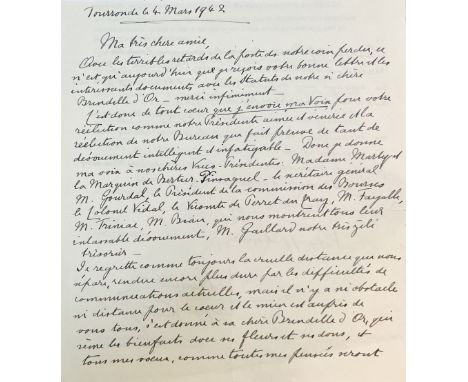 Tourronde le 4 Mars 1942
Ma très chere amie,
Avec les terribles retards de la poste des notre coin perdu, ce
n'est qu'aujourd'hui que je reçois votre bonne lettre et les
interessents documents avec les Statuts de notre si chère
Brindille d'Or – merci infiniment –
C'est donc de tout coeur que j'envoie ma Voix pour votre
reélection comme notre Présidente aimée et venérée et la
réélection de notre Bureau qui fait preuve de tant de
dévouement intelligent et infatigable – Donc je donne
ma voix à nos chères Vices-Présidentes, Madame Martyn et
la Marquise de Bertier Pinsaguel – le secrétaire général
M. Gourdal, le Président de la commission des Bourses
le Colonel Vidal, le Vicomte de Perret du Cray, M. Fayolle,
M. Triniac, M. Biau, qui nous montrent tous leur
inlassable dévouement, M. Gaillard notre très zélé
trésorier –
Je regrette comme toujours la cruelle distance qui nous
sépare, rendue encore plus dure par les difficultés de
communications actuelles, mais il n'y a ni obstacle
ni distance pour le coeur et le mien est auprès de
vous tous, s'est donné à sa chère Brindille d'Or, qui
sème les bienfaits avec ses fleurs et ses dons, et
tous mes voeux, comme toutes mes pensées seront